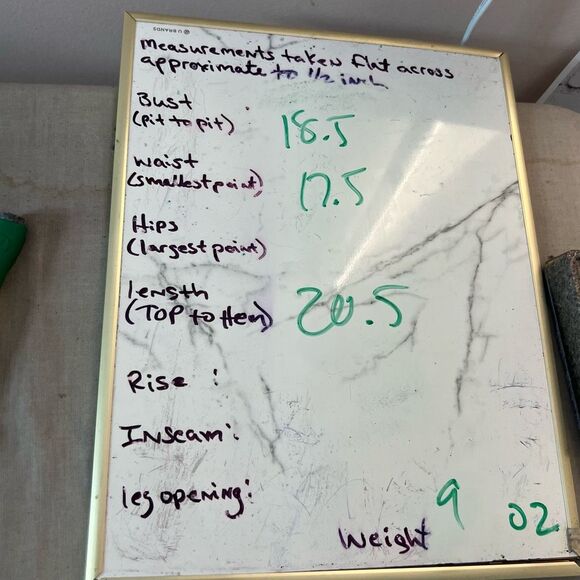 U BRANDS
measurements taken flat across
approximate to 1/2 inch
Bust
(pit to pit) 18.5
waist
(smallest point) 17.5
Hips
(largest point)
length
(TOP to Hem) 20.5
Rise :
Inseam:
leg opening:
Weight 9 oz